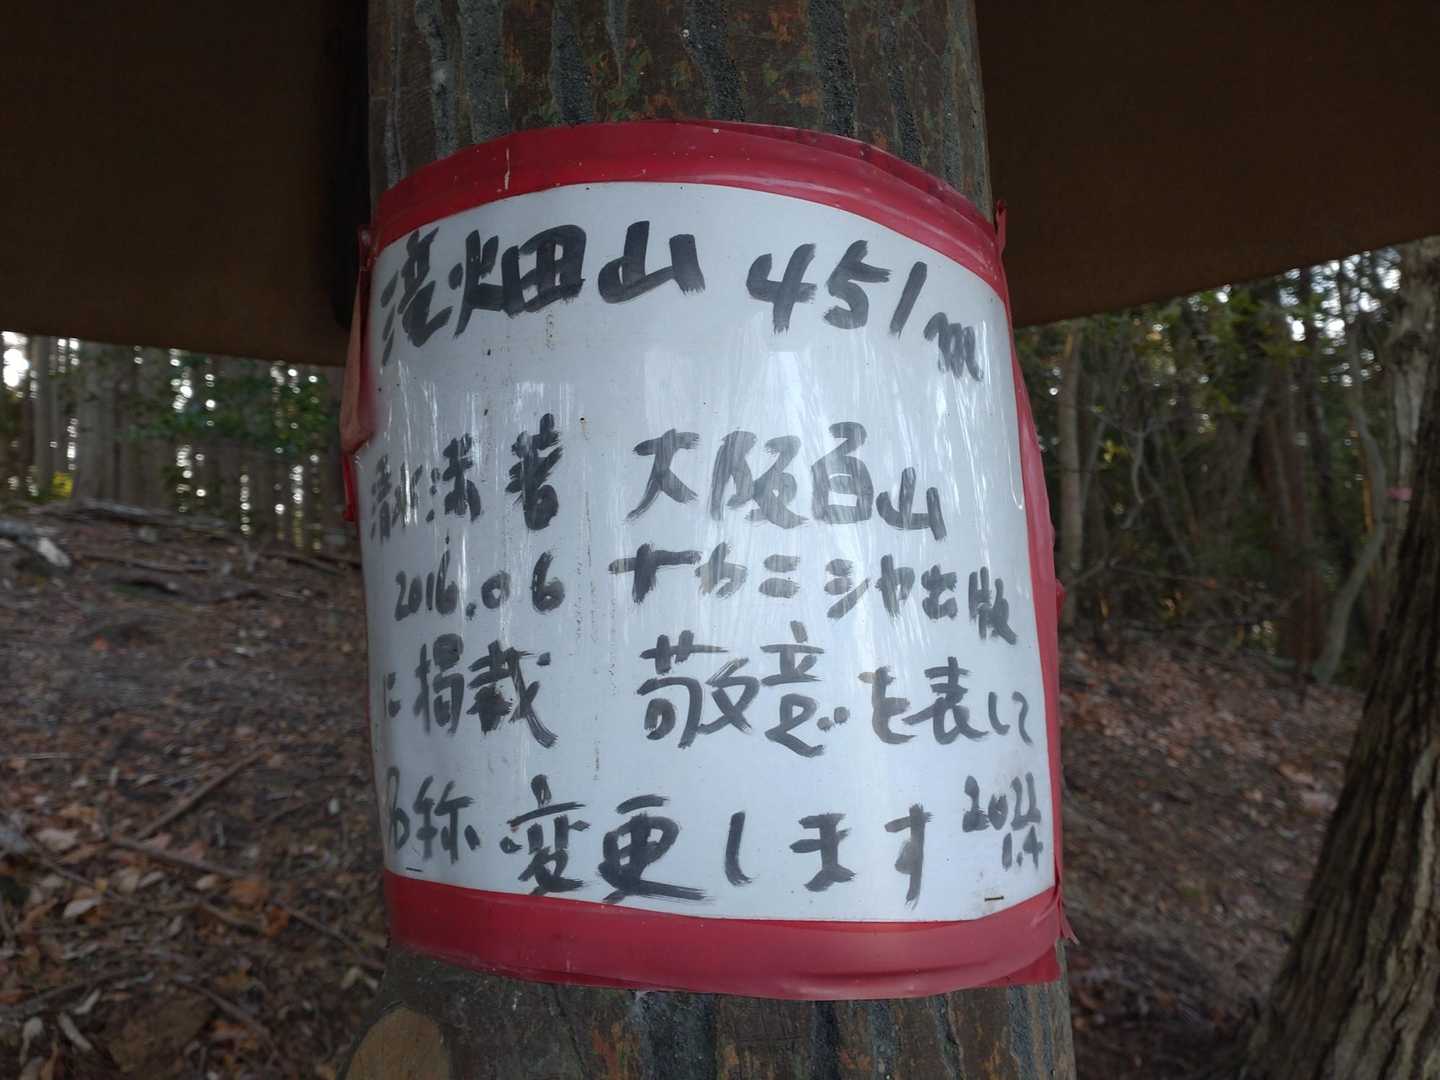 滝畑山 451m
清水満著 大阪百山
2016.06 ナカニシヤ出版
に掲載 敬意を表して
名称変更します 2022
1.4